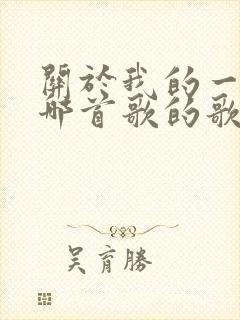 關於我的一
哪首歌的歌
吳育勝